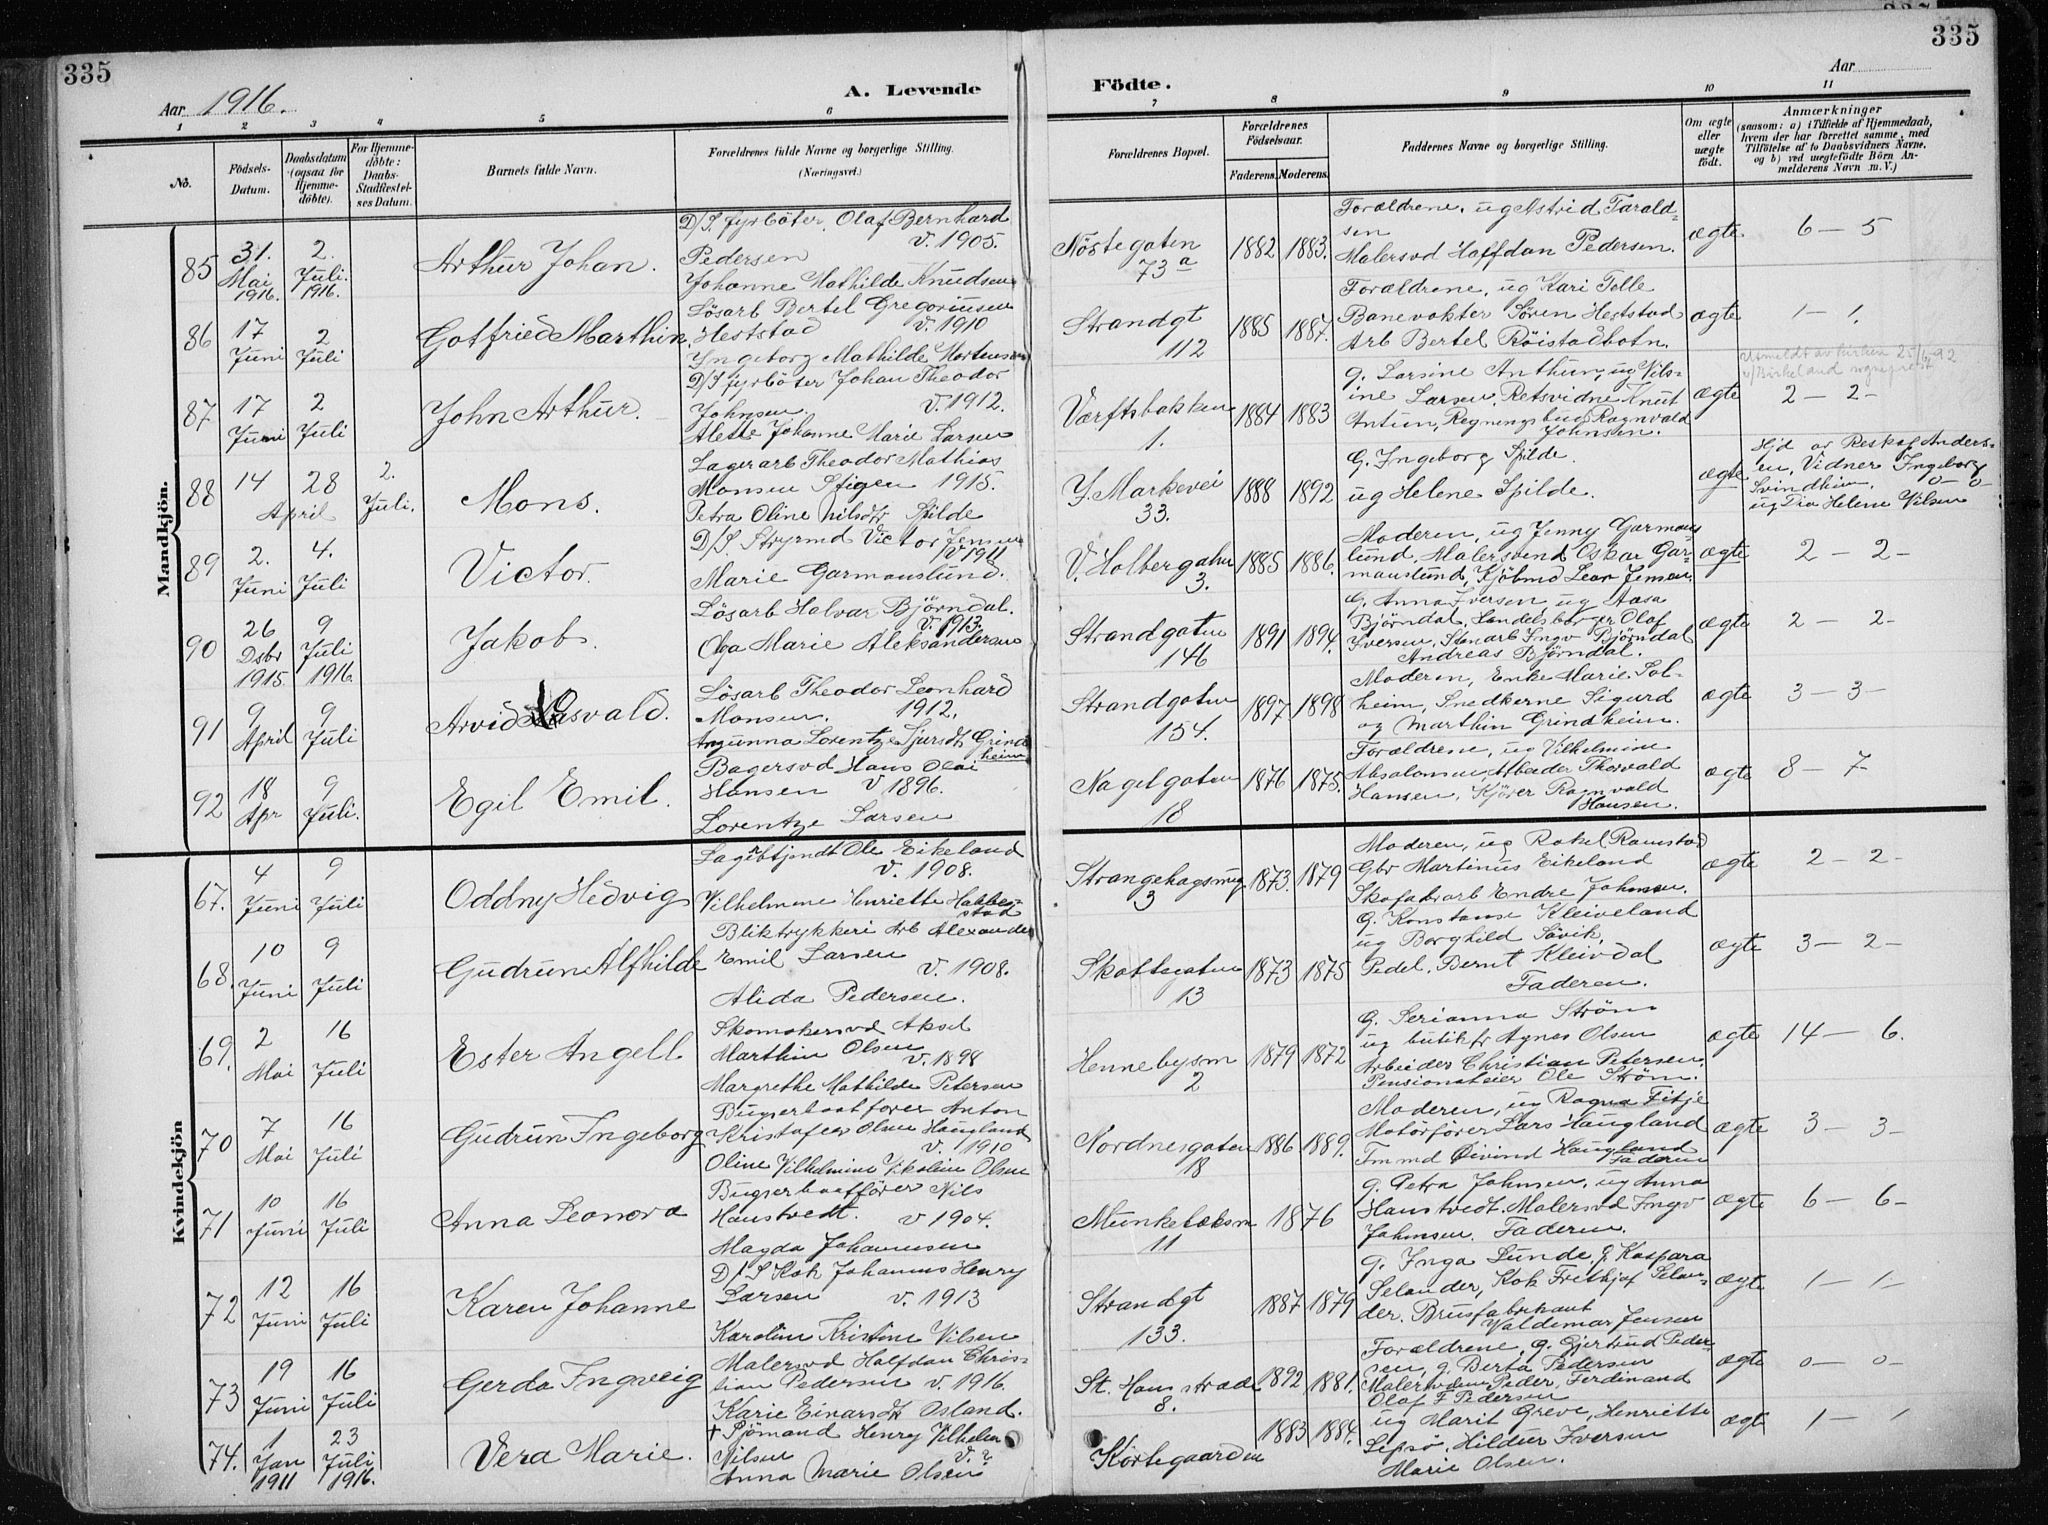 335
335
Aar 1916.
A. Levende
Födte.
Aar
1 2 3 4 5 6 7 8 9 10 11
No.
Födsels-Datum.
Daabsdatum (ogsaa for Hjemmedöbte).
For Hjemmedöbte: Daabs-Stadfæstelses Datum.
Barnets fulde Navn.
Forældrenes fulde Navne og borgerlige Stilling.
(Næringsvei.)
Forældrenes Bopæl.
Forældrenes Födselsaar.
Faderens. Moderens.
Faddernes Navne og borgerlige Stilling.
Om ægte eller uægte födt.
Anmærkninger
(saasom: a) i Tilfælde af Hjemmedaab, hvem der har forrettet samme, med Tilföielse af to Daabsvidners Navne, og b) ved uægtefödte Börn Anmelderens Navn m. V.)
Mandkjön.
85 31. Mai 1916. 2. Juli. 1916. Arthur Johan.
D/S. fyrböter. Olaf Bernhard
Pedersen v. 1905.
Johanne Mathilde Knudsen
Nöstegaten 73 a 1882 1883.
Forældrene, ug Astrid Farald-
sen
Malersvd Halfdan Pedersen. ægte 6 – 5
86 17 Juni 2 Juli Gotfried Marthin
Lösarb Bertel Gregoriusen
Heststad v. 1910
Yngeborg Mathilde Mortensen
Strandgt 112 1885 1887.
Forældrene, ug Kari Tolle
Banevokter Sören Heststad
Arb Bertel Röistadbotn. ægte 1 – 1.
87 17 Juni 2 Juli John Arthur.
D/S fyrböter Johan Theodor
Johnsen. v. 1912.
Alette Johanne Marie Larsen
Værftsbakken 1. 1884 1883
g. Larsine Anthun, ug Nils-
ine Larsen. Retsvidne Knut
Antun, Ragnvald
Johnsen. ægte
Utmeldt av kirken 25/6 92
2 – 2 –
88 14 28 April 2. Juli. Mons.
Lagerarb Theodor Mathias
Monsen 1915.
Petra Oline Nilsdtr Spilde
Y. Markevei 33. 1888 1892
G. Ingeborg Spilde.
ug Helene Spilde. ægte
Hjd av Reskap Anders-
en, Vidner Ingeborg
Svindheim. 0 – 0
ug Dia Helene Nilsen
89 2. Juni 4. Juli Victor.
D/S. Styrmd Victor Jensen
v. 1911
Marie Garmanslund.
V. Holbergahn 3. 1885 1886.
Moderen, ug Jenny Garmans
lund, Malersvend Oskar Gar-
manslund, Kjöbmd Leon Jensen. ægte 2 – 2 –
90 26 Dsbr 1915. 9 Juli 1916. Jakob.
Lösarb Halvar Björndal.
v. 1913.
Olga Marie Aleksandersen
Strandgaten 146 1891 1894.
G. Anna Iversen ug Aasa
Björndal, Handelsborger Olaf
Iversen, Stenarb Ingv Björndal
Andreas Björndal. ægte 2 – 2 –
91 9 April 9 Juli Arvid Osvald.
Lösarb Theodor Leonhard
Monsen. 1912.
Angunna Lorentze Sjursdtr Grind
heim
Strandgaten 154. 1897 1898
Moderen, Enke Marie Sol-
heim, Snedkerne Sigurd
og Marthin Grindheim. ægte 3 – 3 –
92 18 Apr 9 Juli. Egil Emil.
Bagersvd Hans Olai
Hansen v 1896.
Lorentze Larsen
Nagelgaten 18 1876 1875.
Forældrene, ug Vilhelmine
Absalonsen, Arbeider Thorvald
Hansen, Kjörer Ragnvald
Hansen. ægte 8 – 7 –
Kvindekjön
67. 4 Juni 9 Juli Oddny Hedvig
Ole Eikeland
v. 1908.
Vilhelmine Henriette Habbe-
stad
Strangehagsmug 3 1873. 1879
Moderen, ug Rakel Ramstad
Gbr Martinus Eikeland
Skofabrarb Endre Johnsen. ægte 2 – 2 –
68. 10 Juni 9 Juli Gudrun Alfhilde
Bliktrykkeri Arb Alexander
Emil Larsen
v. 1908.
Alida Pedersen.
Skottegaten 13 1873 1875
G. Konstanse Kleiveland
ug Borghild Sövik,
Pedel, Bernt Kleivdal
Faderen. ægte 3 – 2 –
69. 2 Mai 16 Juli Ester Angell
Skomakersvd Aksel
Marthin Olsen
v. 1898
Margrethe Mathilde Petersen
Hennebysm 2 1879 1872
G. Serianna Ström
ug butikfr Agnes Olsen
Arbeider Christian Petersen
Pensionateier Ole Ström. ægte 14 – 6.
70 7 Mai 16 Juli Gudrun Ingeborg
Bugserbaatförer Anton
Kristofer Olsen Haugland
v. 1910
Oline Vilhelmine Nikoline Olsen
Nordnesgaten 18 1886 1889.
Moderen, ug Ragna Fitje
Motorförer Lars Haugland
Tmmd Öivind Haugland
Faderen ægte 3 – 3 –
71 10 Juni 16 Juli Anna Leonora
Bugserbaatförer Nils
Haustvedt. v 1904.
Magda Johannesen
Munkebæksm 11 1876
g. Petra Johnsen, ug Anna
Haustvedt. Malersvd Ingv
Johnsen. Faderen. ægte 6 – 6 –
72 12 Juni 16 Juli Karen Johanne
D/S Kok Johannes Henry
Larsen v. 1913
Karoline Kristine Nilsen
Strandgt 133. 1887 1879
g. Inga Lunde. g. Kaspara
Selander, Kok Frithjof Selan-
der. Brusfabrikant
Valdemar Jensen ægte 1 – 1 –
73 19 Juni 16 Juli Gerda Ingveig
Malersvd Halfdan Chris-
tian Pedersen v. 1916.
Karie Einarsdtr Osland.
St. Hans stræde 8. 1892 1881.
Forældrene, g. Gjertrud Peder
sen, g. Berta Pedersen
Malersvdene Peder, Ferdinand
Olaf F Pedersen ægte 0 – 0 –
74. 1 Jan 1911 23 Juli 1916. Vera Marie.
+ Sjömand Henry Vilhelm
Nilsen v. ?
Anna Marie Olsen
Kortegaarden 1883 1884.
ug Marit Greve, Henriette
Lepsö, Hildur Iversen
Marie Olsen. ægt 1 – 1